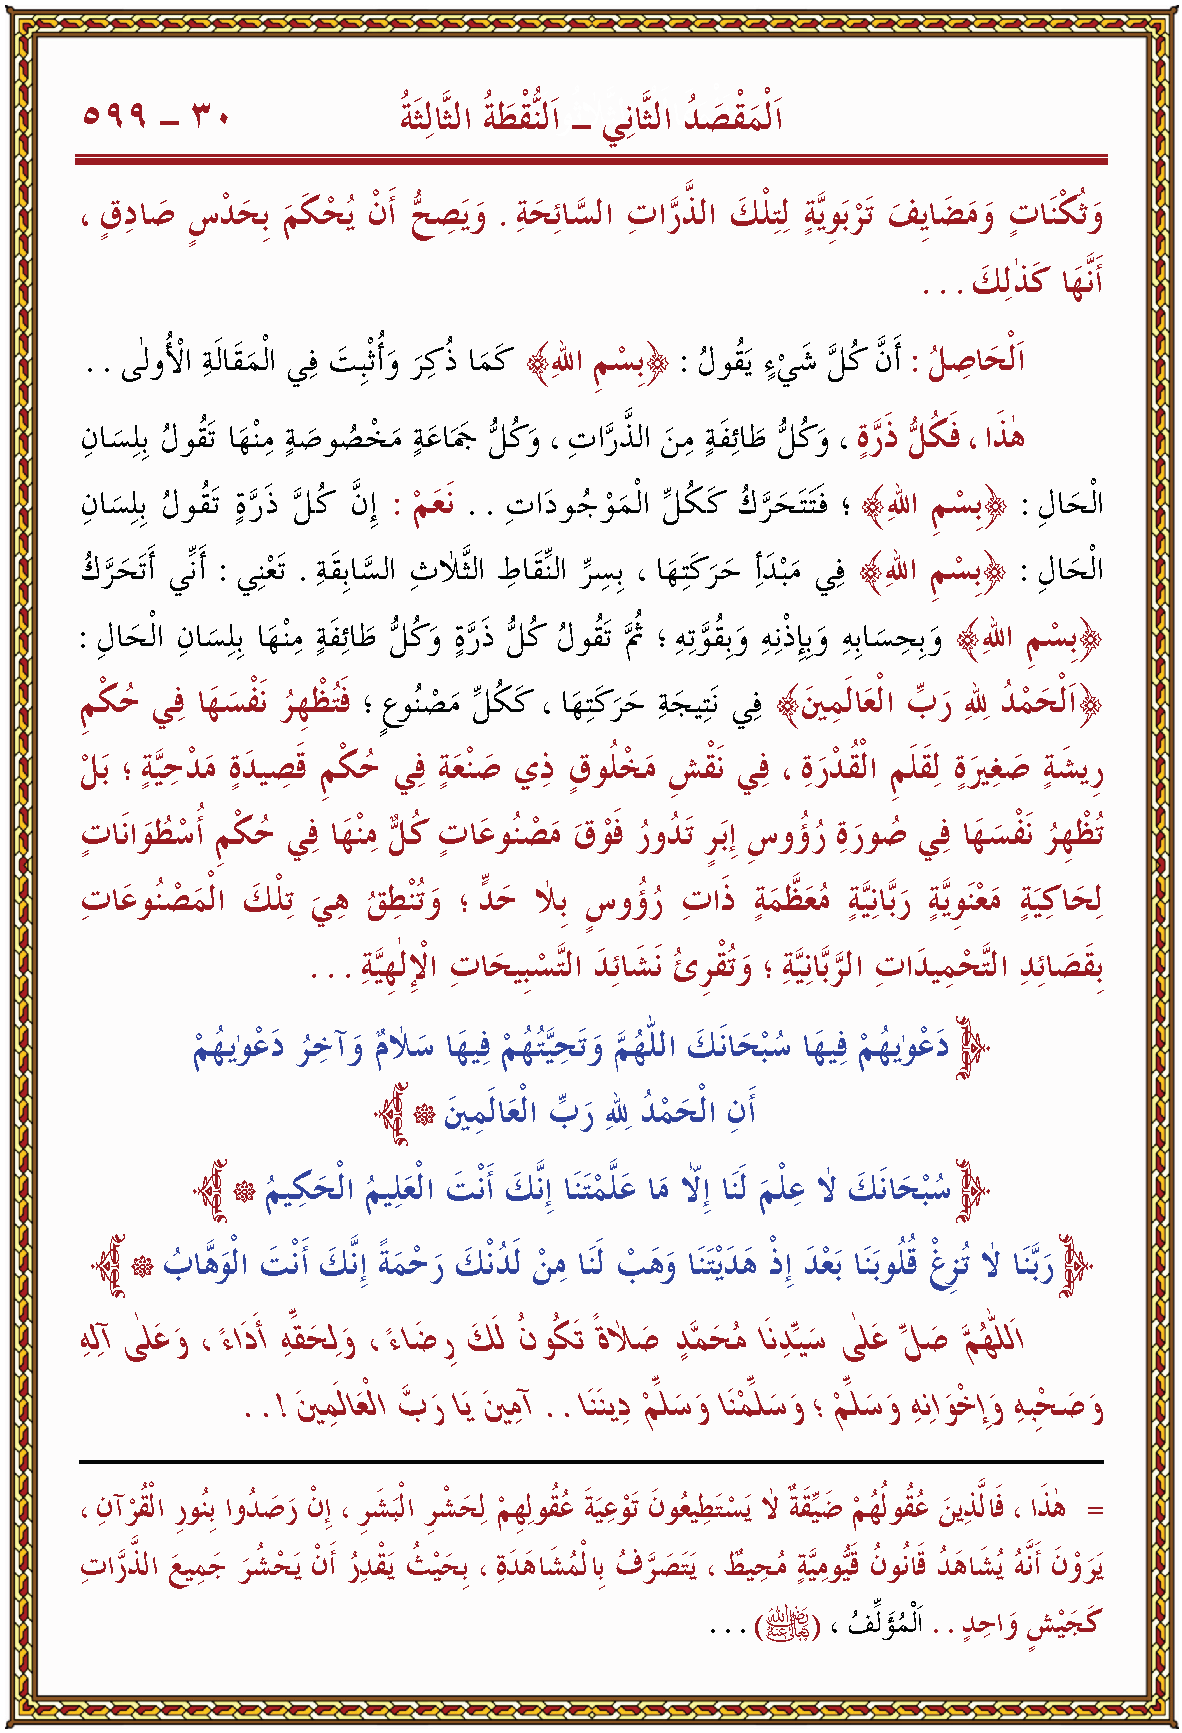 اَلْمَقْصَدُ الثَّانِي ـ اَلنُّقْطَةُ الثَّالِثَةُ ٣٠ ـ ٥٩٩
وَثُكْنَاتٍ وَمَضَايِفَ تَرْبَوِيَّةٍ لِتِلْكَ الذَّرَّاتِ السَّائِحَةِ . وَيَصِحُّ أَنْ يُحْكَمَ بِحَدْسٍ صَادِقٍ ،
أَنَّهَا كَذٰلِكَ . . .
اَلْحَاصِلُ : أَنَّ كُلَّ شَيْءٍ يَقُولُ : ﴿بِسْمِ اللهِ﴾ كَمَا ذُكِرَ وَأُثْبِتَ فِي الْمَقَالَةِ الْأُولٰى . .
هٰذَا ، فَكُلُّ ذَرَّةٍ ، وَكُلُّ طَائِفَةٍ مِنَ الذَّرَّاتِ ، وَكُلُّ جَمَاعَةٍ مَخْصُوصَةٍ مِنْهَا تَقُولُ بِلِسَانِ
الْحَالِ : ﴿بِسْمِ اللهِ﴾ ؛ فَتَتَحَرَّكُ كَكُلِّ الْمَوْجُودَاتِ . . نَعَمْ : إِنَّ كُلَّ ذَرَّةٍ تَقُولُ بِلِسَانِ
الْحَالِ : ﴿بِسْمِ اللهِ﴾ فِي مَبْدَأِ حَرَكَتِهَا ، بِسِرِّ النِّقَاطِ الثَّلَاثِ السَّابِقَةِ . تَعْنِي : أَنِّي أَتَحَرَّكُ
﴿بِسْمِ اللهِ﴾ وَبِحِسَابِهِ وَبِإِذْنِهِ وَبِقُوَّتِهِ ؛ ثُمَّ تَقُولُ كُلُّ ذَرَّةٍ وَكُلُّ طَائِفَةٍ مِنْهَا بِلِسَانِ الْحَالِ :
﴿اَلْحَمْدُ لِلهِ رَبِّ الْعَالَمِينَ﴾ فِي نَتِيجَةِ حَرَكَتِهَا ، كَكُلِّ مَصْنُوعٍ ؛ فَتُظْهِرُ نَفْسَهَا فِي حُكْمِ
رِيشَةٍ صَغِيرَةٍ لِقَلَمِ الْقُدْرَةِ ، فِي نَقْشِ مَخْلُوقٍ ذِي صَنْعَةٍ فِي حُكْمِ قَصِيدَةٍ مَدْحِيَّةٍ ؛ بَلْ
تُظْهِرُ نَفْسَهَا فِي صُورَةِ رُؤُوسِ إِبَرٍ تَدُورُ فَوْقَ مَصْنُوعَاتٍ كُلٌّ مِنْهَا فِي حُكْمِ أُسْطُوَانَاتٍ
لِحَاكِيَةٍ مَعْنَوِيَّةٍ رَبَّانِيَّةٍ مُعَظَّمَةٍ ذَاتِ رُؤُوسٍ بِلَا حَدٍّ ؛ وَتُنْطِقُ هِيَ تِلْكَ الْمَصْنُوعَاتِ
بِقَصَائِدِ التَّحْمِيدَاتِ الرَّبَّانِيَّةِ ؛ وَتُقْرِئُ نَشَائِدَ التَّسْبِيحَاتِ الْإِلٰهِيَّةِ . . .
﴿دَعْوٰيهُمْ فِيهَا سُبْحَانَكَ اللّٰهُمَّ وَتَحِيَّتُهُمْ فِيهَا سَلَامٌ وَآخِرُ دَعْوٰيهُمْ
أَنِ الْحَمْدُ لِلهِ رَبِّ الْعَالَمِينَ ۞﴾
﴿سُبْحَانَكَ لَا عِلْمَ لَنَا إِلَّا مَا عَلَّمْتَنَا إِنَّكَ أَنْتَ الْعَلِيمُ الْحَكِيمُ ۞﴾
﴿رَبَّنَا لَا تُزِغْ قُلُوبَنَا بَعْدَ إِذْ هَدَيْتَنَا وَهَبْ لَنَا مِنْ لَدُنْكَ رَحْمَةً إِنَّكَ أَنْتَ الْوَهَّابُ ۞﴾
اَللّٰهُمَّ صَلِّ عَلٰى سَيِّدِنَا مُحَمَّدٍ صَلَاةً تَكُونُ لَكَ رِضَاءً ، وَلِحَقِّهِ أَدَاءً ، وَعَلٰى آلِهِ
وَصَحْبِهِ وَإِخْوَانِهِ وَسَلِّمْ ؛ وَسَلِّمْنَا وَسَلِّمْ دِينَنَا . . آمِينَ يَا رَبَّ الْعَالَمِينَ ! . .
= هٰذَا ، فَالَّذِينَ عُقُولُهُمْ ضَيِّقَةٌ لَا يَسْتَطِيعُونَ تَوْعِيَةَ عُقُولِهِمْ لِحَشْرِ الْبَشَرِ ، إِنْ رَصَدُوا بِنُورِ الْقُرْآنِ ،
يَرَوْنَ أَنَّهُ يُشَاهَدُ قَانُونُ قَيُّومِيَّةٍ مُحِيطٌ ، يَتَصَرَّفُ بِالْمُشَاهَدَةِ ، بِحَيْثُ يَقْدِرُ أَنْ يَحْشُرَ جَمِيعَ الذَّرَّاتِ
كَجَيْشٍ وَاحِدٍ . . اَلْمُؤَلِّفُ ، (رَضِيَ اللهُ عَنْهُ) . . .